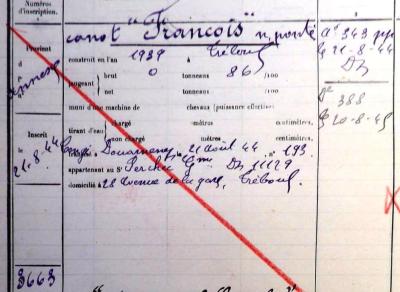 Numéros d'inscription.
canot "François" n. ponté
construit en l'an 1939 à Tréboul
Provient
brut 0 tonneaux 86 /100
jaugeant
net tonneaux /100
muni d'une machine de chevaux (puissance effective)
chargé mètres centimètres.
tirant d'eau
non chargé mètres centimètres.
Inscrit
le
21-8-44
Congé: Douarnenez 21 Août 44 n° 193
appartenant au St Perchec Gme Dz 11129
domicilié à 28 Avenue de la gare, Tréboul
3663
343
21-8-44
Dz
388
20-8-45